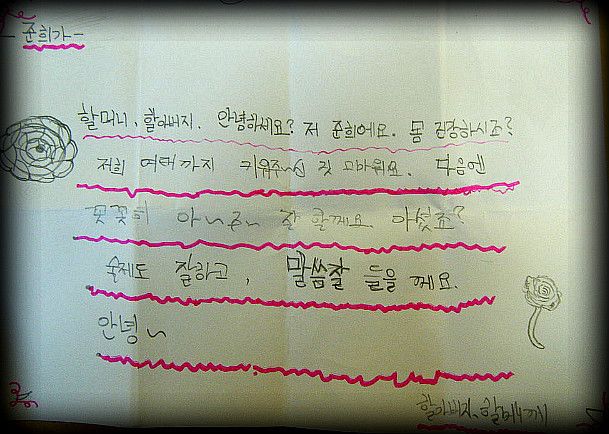 - 준희가 -
할머니, 할아버지. 안녕하세요? 저 준희에요. 몸 건강하시죠?
저희 여태까지 키워주신 것 고마워요. 다음엔
꼿꼿히 아~주~ 잘 할께요. 아셨죠?
숙제도 잘하고, 말씀잘 들을께요.
안녕~
할아버지, 할머니까지